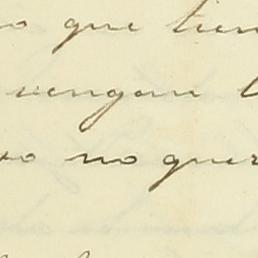 que tien
vengan
no quer